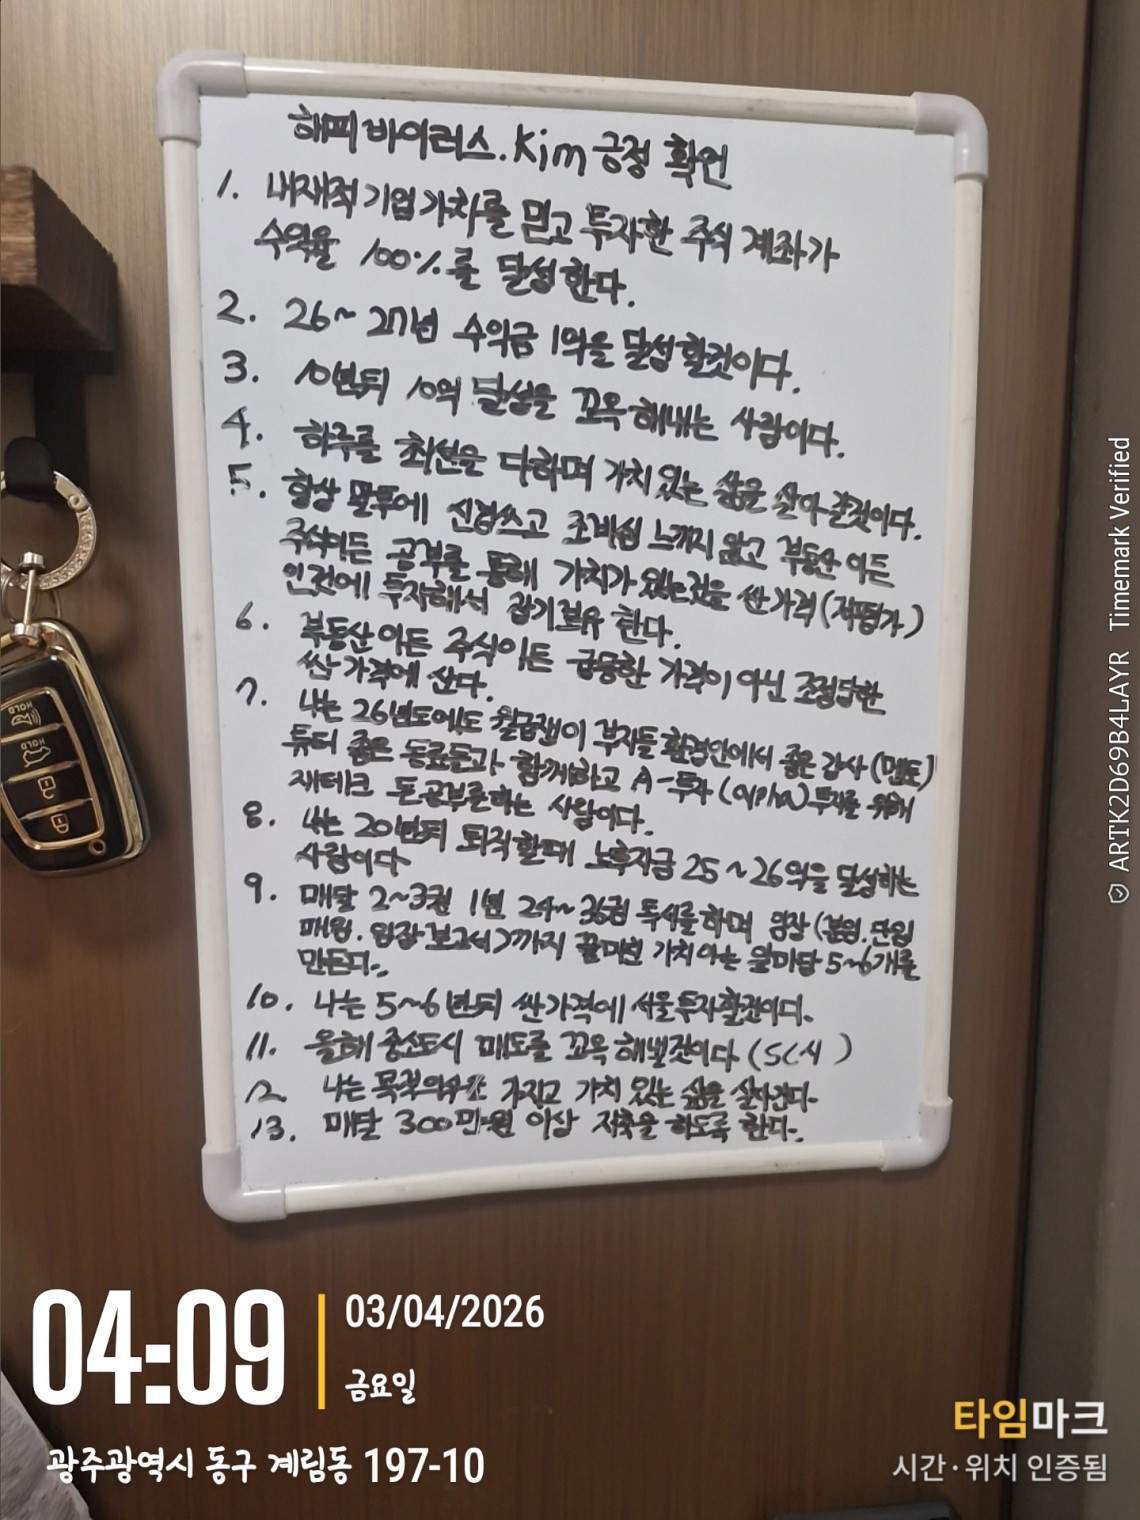 해피바이러스.Kim 긍정 확언
1. 내재적 기업가치를 믿고 투자한 주식 계좌가
수익율 100%를 달성한다.
2. 26~27년 수익금 1억을 달성할것이다.
3. 10년뒤 10억 달성을 꼬옥 해내는 사람이다.
4. 하루를 최선을 다하며 가치있는 삶을 살아갈것이다.
5. 항상 말투에 신경쓰고 조바심 느끼지 않고 부동산이든
주식이든 공부를 통해 가치가 있는것을 싼가격(저평가)
인것에 투자해서 장기보유 한다.
6. 부동산이든 주식이든 급등한 가격이 아닌 조정당한
싼가격에 산다.
7. 나는 26년도에도 월급쟁이 부자들 환경안에서 좋은 강사(멘토)
튜터 좋은 동료들과 함께하고 A-투자 투자를 위해
재테크 돈공부를하는 사람이다.
8. 나는 20년뒤 퇴직할때 노후자금 25~26억을 달성하는
사람이다
9. 매달 2~3권 1년 24~36권 독서를하며 임장(분임.단임
매임.임장보고서)까지 끝마친 가치아는 앞마당 5~6개를
만든다.
10. 나는 5~6년뒤 싼가격에 서울투자할것이다.
11. 올해 중소도시 매도를 꼬옥 해낼것이다 (SC시 )
12 나는 목적의식을 가지고 가치 있는 삶을 살아간다-
13. 매달 300만원 이상 저축을 하도록 한다.
04:09
03/04/2026
금요일
광주광역시 동구 계림동 197-10
타임마크
시간·위치 인증됨
ARTK2D69B4LAYR Timemark Verified